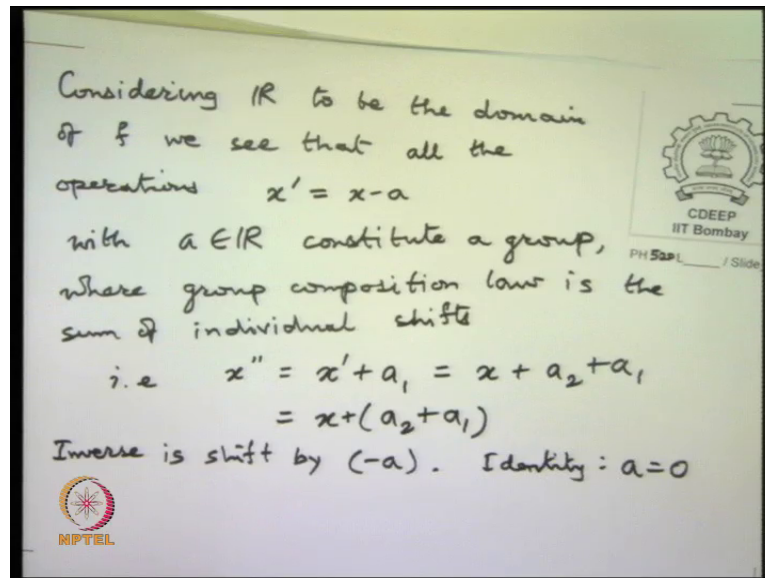 Considering IR to be the domain
of f we see that all the
operations x' = x-a
with a ∈ IR constitute a group,
where group composition law is the
sum of individual shifts
i.e x" = x' + a₁ = x + a₂ + a₁
= x + (a₂ + a₁)
Inverse is shift by (-a). Identity : a = 0
CDEEP
IIT Bombay
PH 520 L ____ / Slide
NPTEL